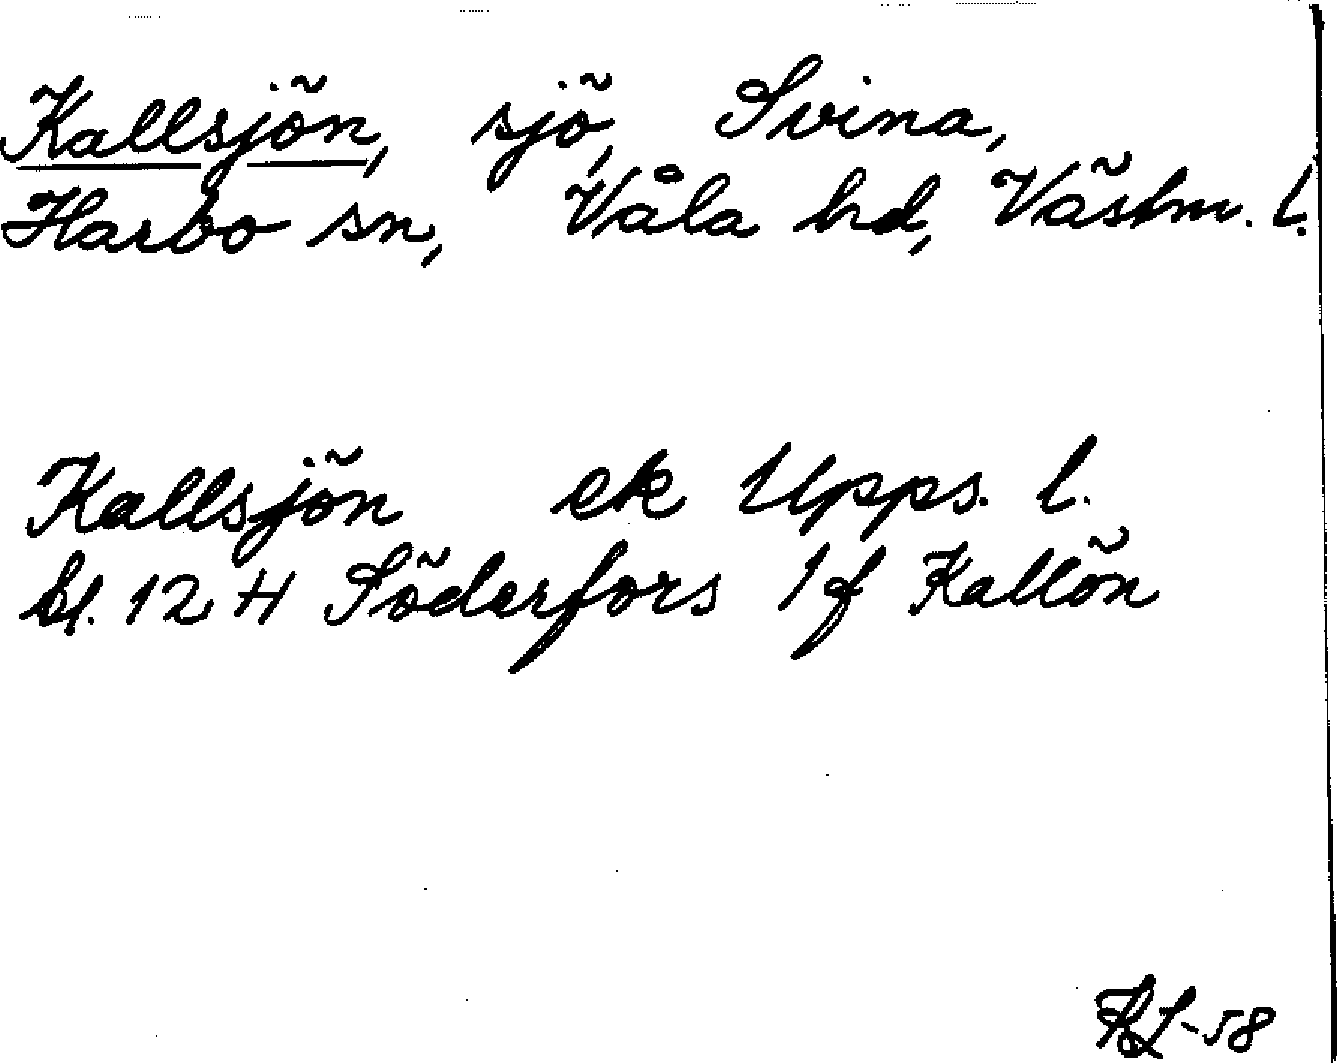 Kallsjön, sjö, Svina,
Harbo sn, Våla hd, Västm. l.
Kallsjön ek Upps. l.
bl. 12 H Söderfors 1 f Kallön
-58